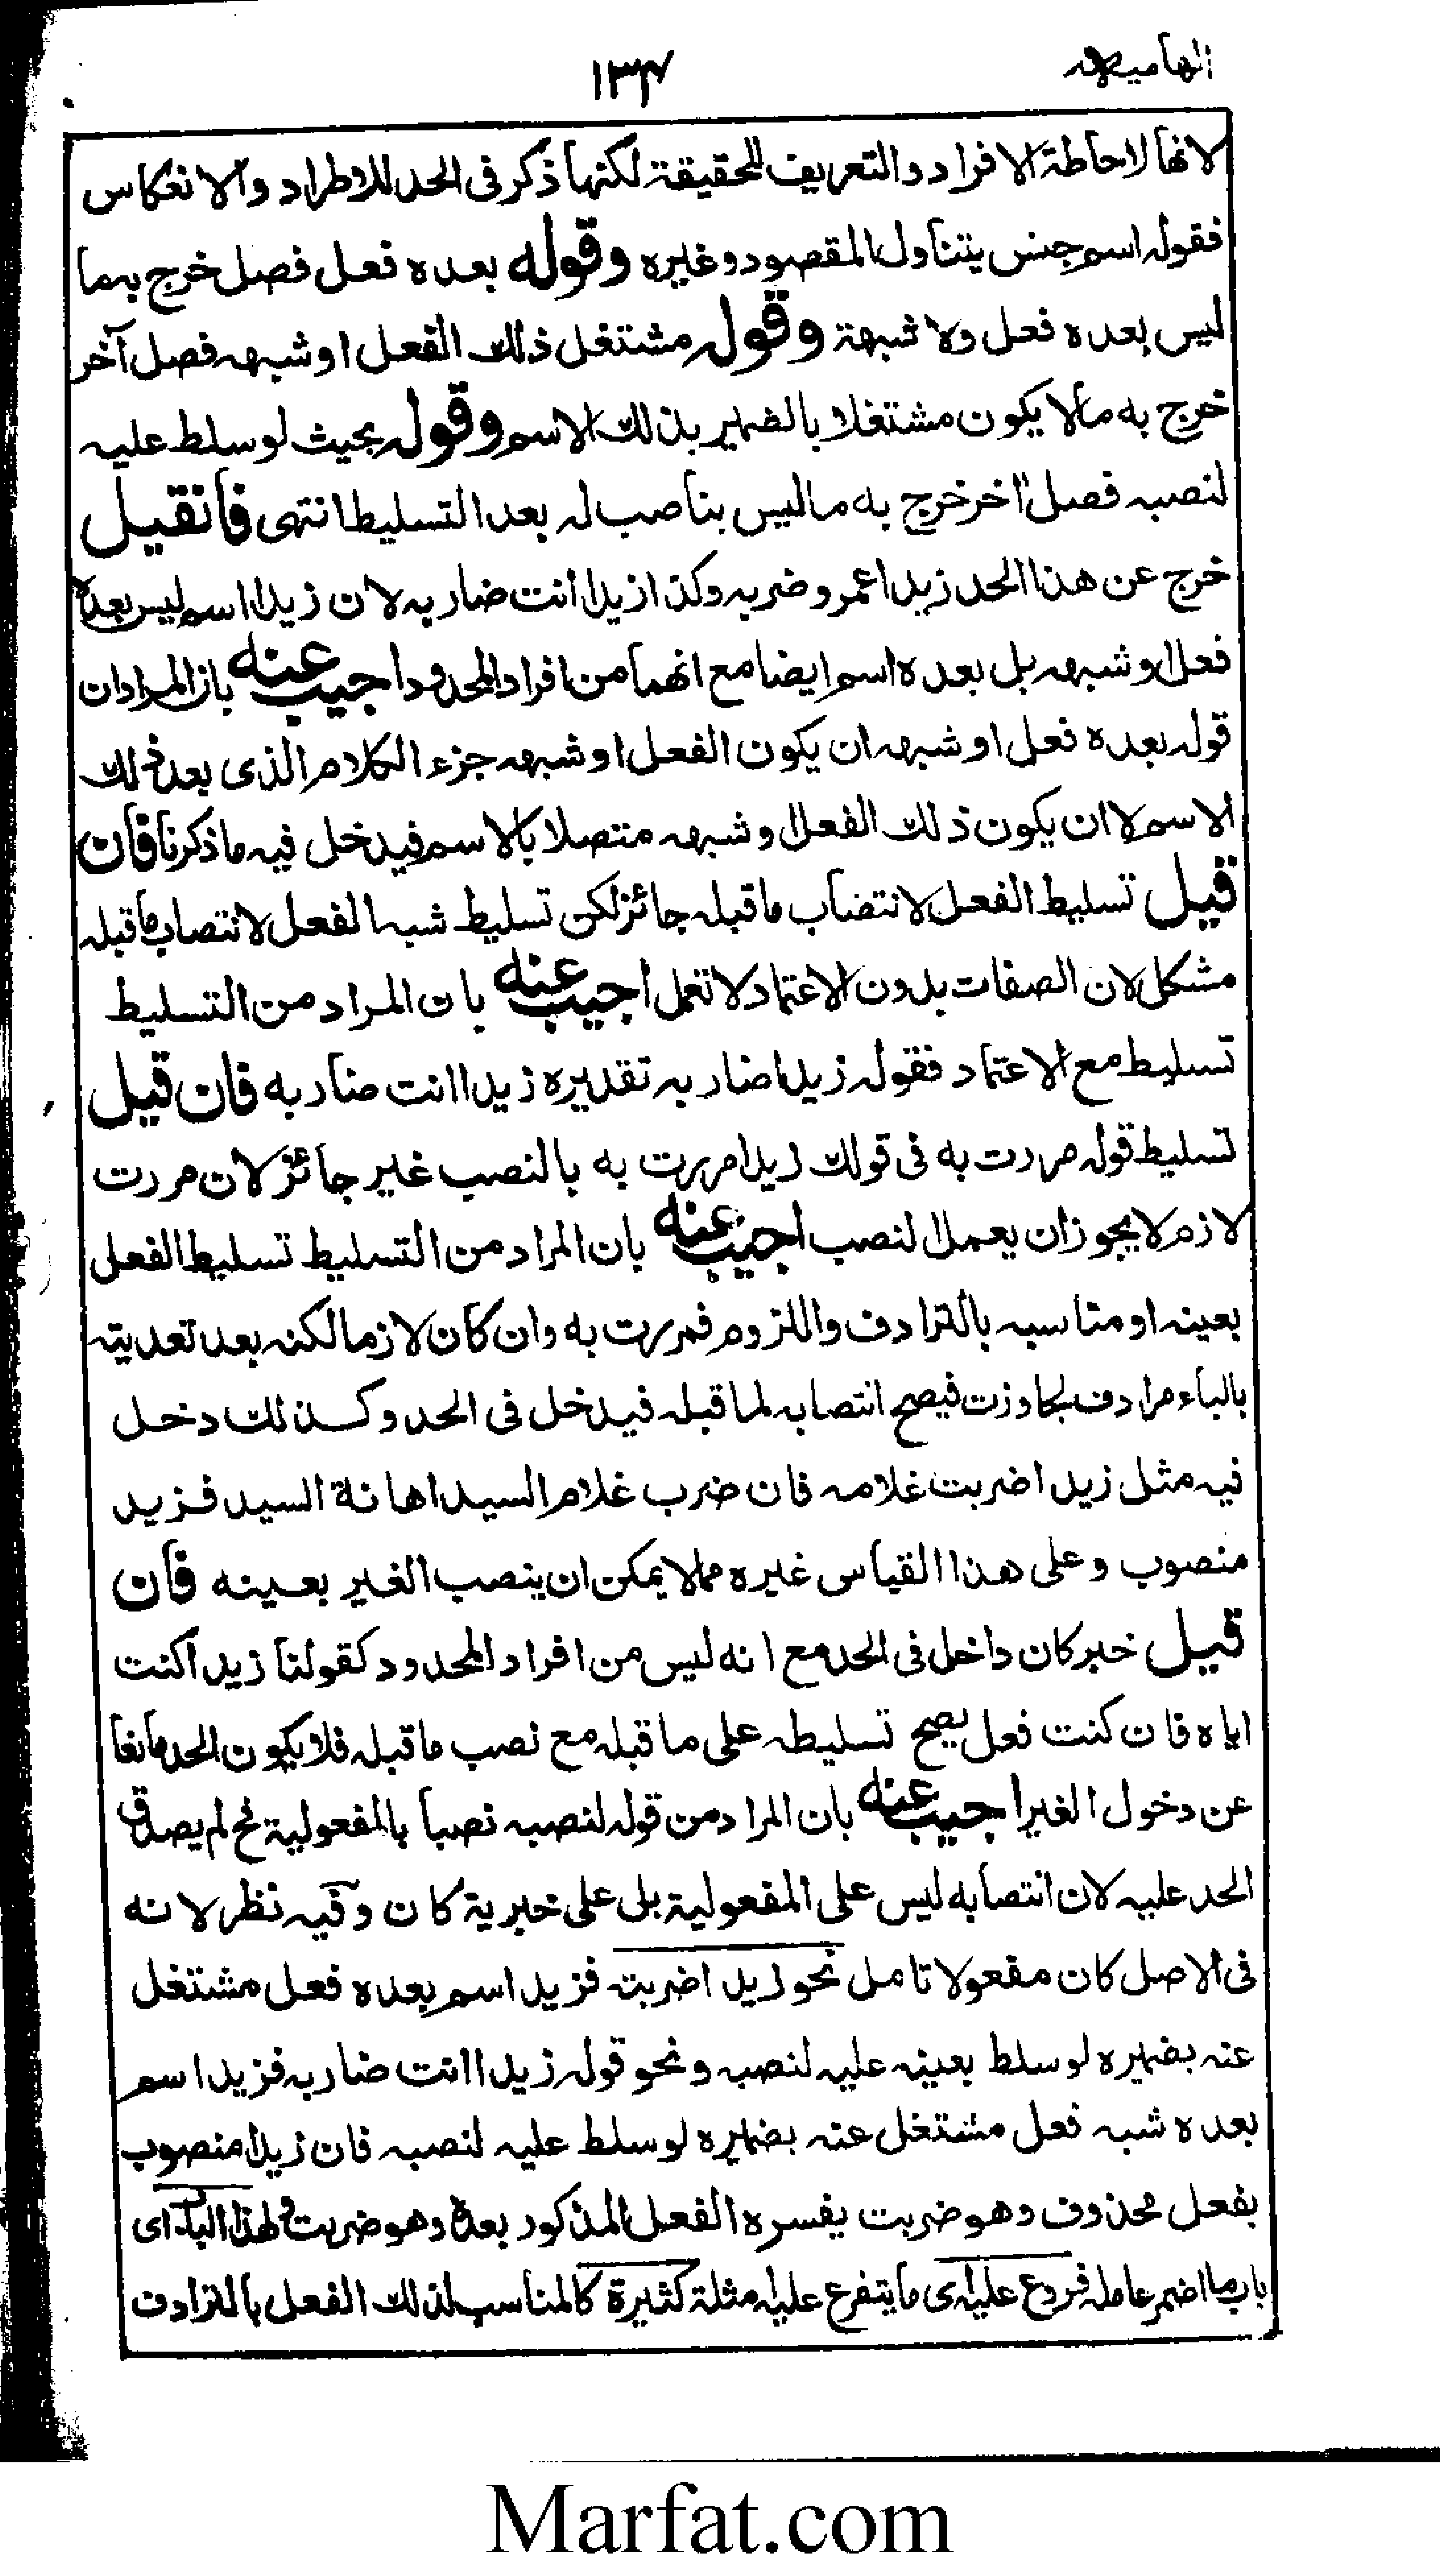 الهاميه
١٣٤
لانها لاحاطة الافراد والتعريف للحقيقة لكنها ذكر فى الحد للاطراد والانعكاس
فقوله اسم جنس يتناول المقصود وغيره وقوله بعده فعل فصل خرج بهما
ليس بعده فعل ولا شبهة وقوله مشتغل ذلك الفعل او شبهه فصل آخر
خرج به مالا يكون مشتغلا بالضمير بذلك الاسم وقوله بحيث لو سلط عليه
لنصبه فصل اخر خرج به ماليس بناصب له بعد التسليط انتهى فانقيل
خرج عن هذا الحد زيدا عمرو ضربه وكذا زيدا انت ضاربه لان زيدا اسم ليس بعده
فعل او شبهه بل بعده اسم ايضا مع انهما من افراد المحدود اجيب عنه بان المراد ان
قوله بعده فعل او شبهه ان يكون الفعل او شبهه جزء الكلام الذى بعد ذلك
الاسم لا ان يكون ذلك الفعل او شبهه متصلا بالاسم فيدخل فيه ما ذكرنا فان
قيل تسليط الفعل لانتصاب ماقبله جائز لكن تسليط شبه الفعل لانتصاب ماقبله
مشكل لان الصفات بدون الاعتماد لا تعمل اجيب عنه بان المراد من التسليط
تسليط مع الاعتماد فقوله زيدا ضاربه تقديره زيدا انت ضاربه فان قيل
تسليط قوله مررت به فى قولك زيدا مررت به بالنصب غير جائز لان مررت
لازم لا يجوز ان يعمل النصب اجيب عنه بان المراد من التسليط تسليط الفعل
بعينه او مناسبه بالترادف واللزوم فمررت به وان كان لازما لكنه بعد تعديته
بالباء مرادف لجاوزت فيصح انتصابه لما قبله فيدخل فى الحد وكذلك دخل
فيه مثل زيدا ضربت غلامه فان ضرب غلام السيد اهانة السيد فزيد
منصوب وعلى هذا القياس غيره مما لا يمكن ان ينصب الغير بعينه فان
قيل خبر كان داخل فى الحد مع انه ليس من افراد المحدود كقولنا زيدا كنت
اياه فان كنت فعل يصح تسليطه على ما قبله مع نصب ماقبله فلا يكون الحد مانعا
عن دخول الغير اجيب عنه بان المراد من قوله لنصبه نصبا بالمفعولية فح لم يصدق
الحد عليه لان انتصابه ليس على المفعولية بل على خبرية كان وفيه نظر لانه
فى الاصل كان مفعولا تامل نحو زيدا ضربته فزيدا اسم بعده فعل مشتغل
عنه بضميره لو سلط بعينه عليه لنصبه ونحو قوله زيدا انت ضاربه فزيدا اسم
بعده شبه فعل مشتغل عنه بضميره لو سلط عليه لنصبه فان زيدا منصوب
بفعل محذوف وهو ضربت يفسره الفعل المذكور بعده وهو ضربت ولهذا الباب اى
باب ما اضمر عامله فروع عليه اى ما يتفرع عليه امثلة كثيرة كالمناسب لذلك الفعل بالترادف
Marfat.com